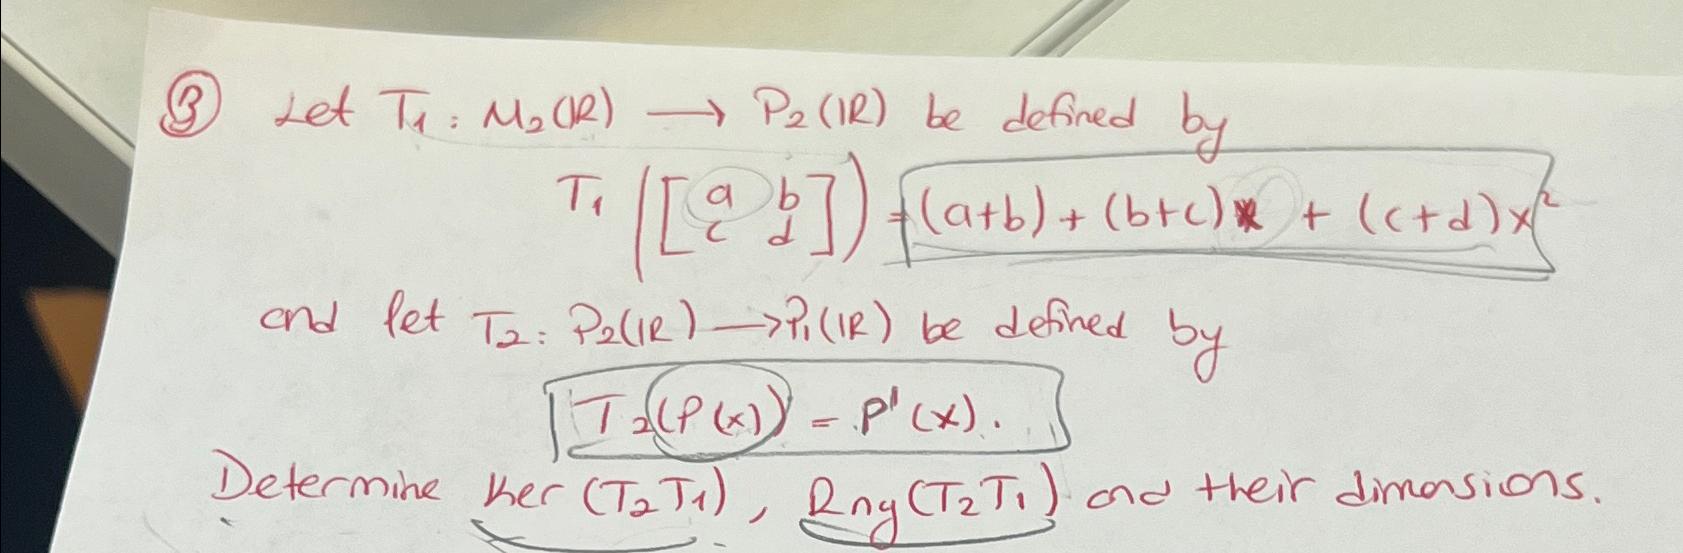 ③ Let T₁: M₂(ℝ) → P₂(ℝ) be defined by
T₁([a b; c d]) = (a+b) + (b+c)x + (c+d)x²
and let T₂: P₂(ℝ) → P₁(ℝ) be defined by
T₂(P(x)) = P'(x).
Determine Ker(T₂T₁), Rng(T₂T₁) and their dimensions.